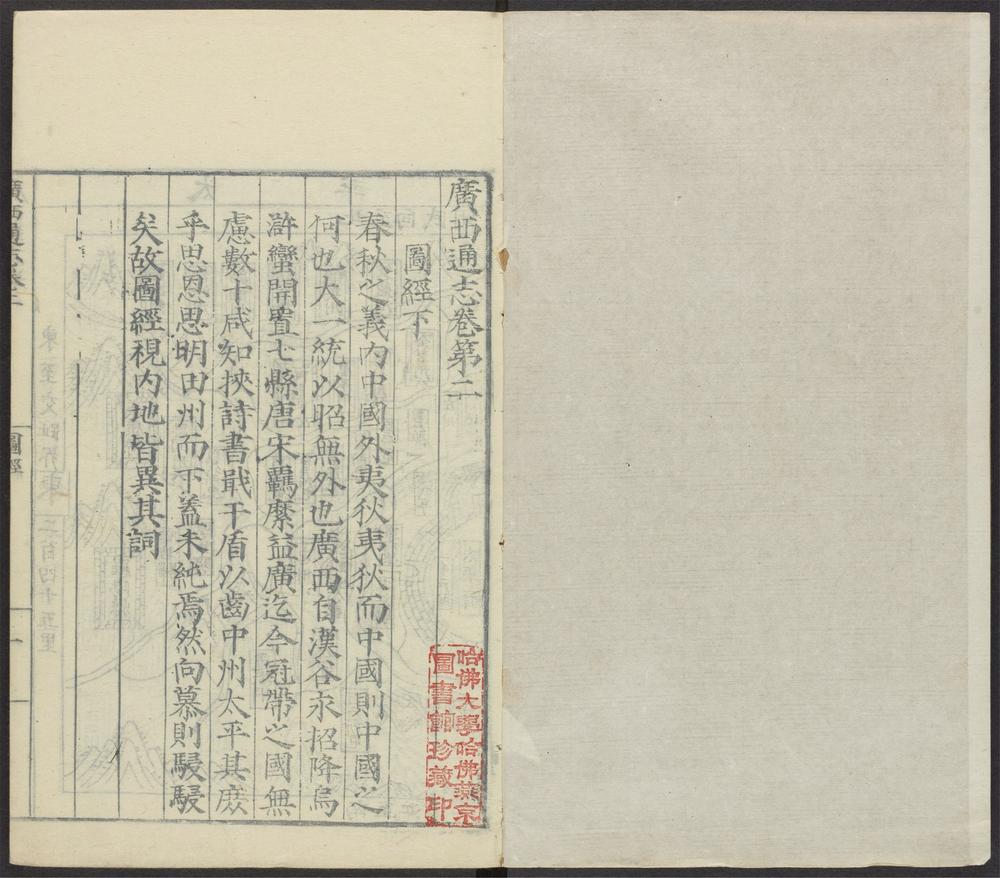 廣西通志卷第二
圖經下
春秋之義内中國外夷狄夷狄而中國則中國之
何也大一統以昭無外也廣西自漢谷永招降烏
滸蠻開置七縣唐宋羈縻益廣迄今冠帶之國無
慮數十咸知挾詩書戢干盾以齒中州太平其庶
乎思恩思明田州而下蓋未純焉然向慕則駸駸
矣故圖經視内地皆異其詞
圖經
一
哈佛大學哈佛燕京
圖書館珍藏印